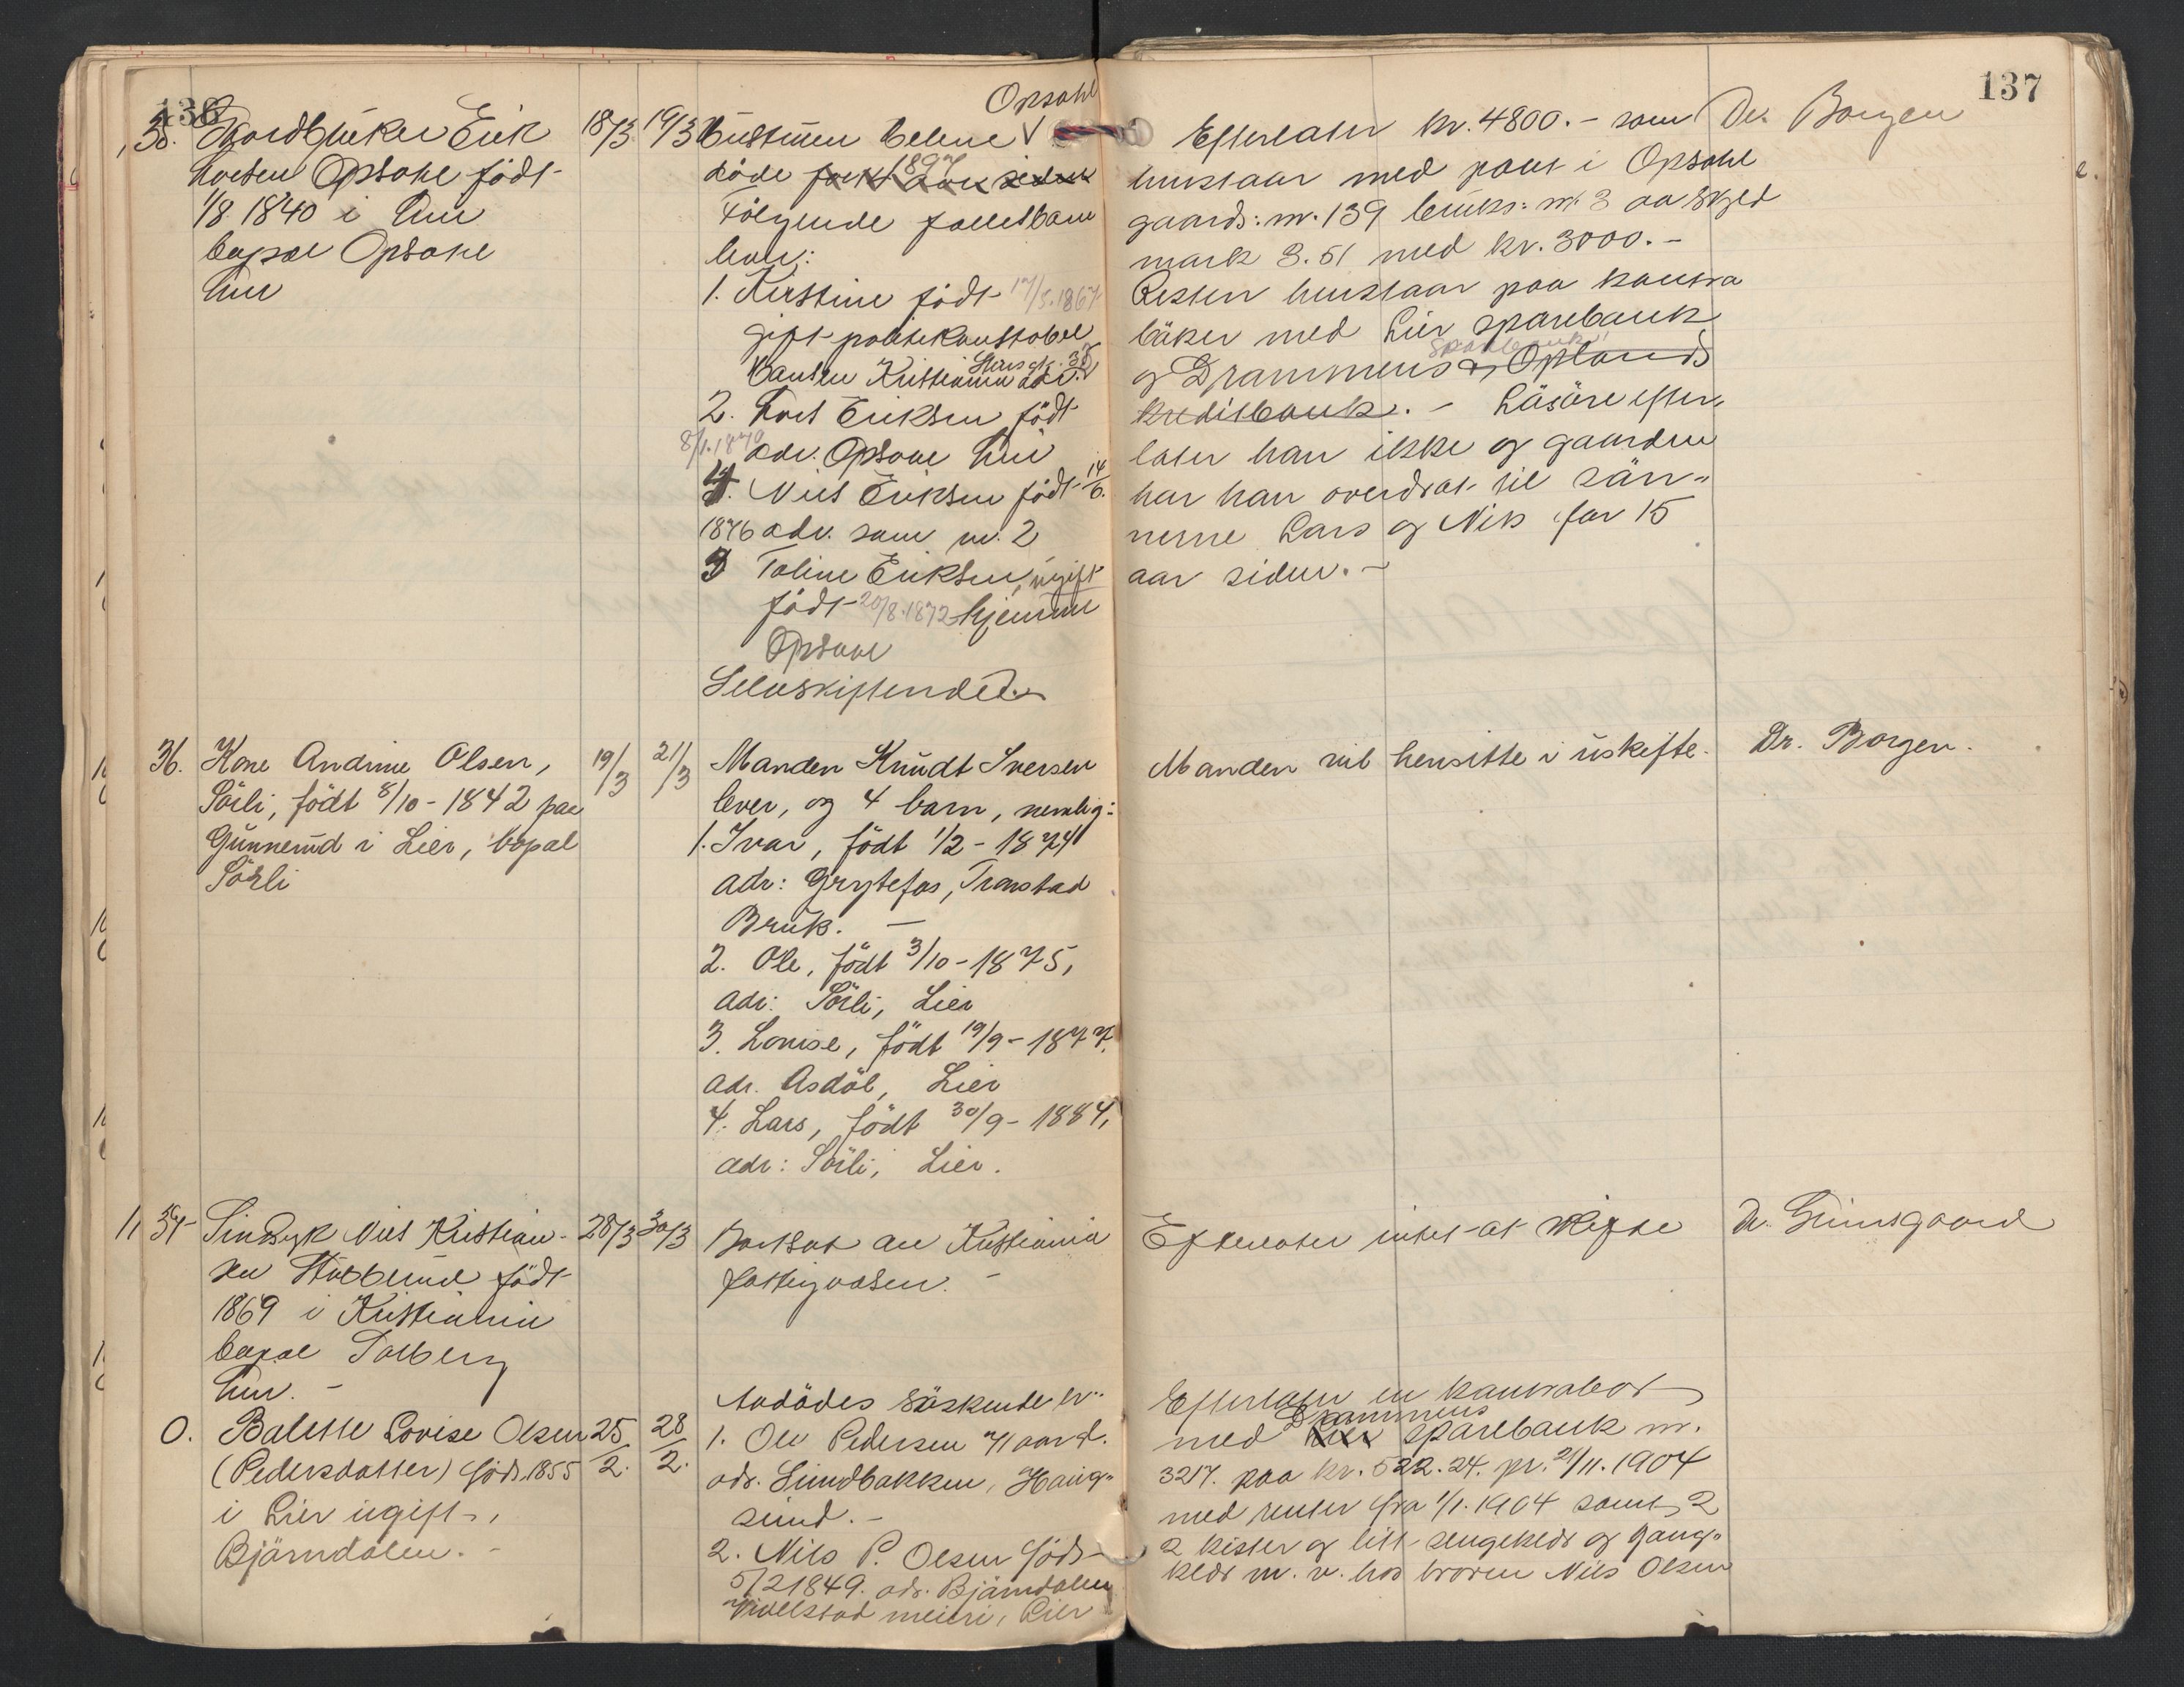 136
35. Gaardbruker Erik
Larsen Opsahl født
1/8 1840 i Lier
bopæl Opsahl
Lier
18/3 19/3
Opsahl
Hustruen Helene
døde 1897
Følgende fællesbarn
lever:
1. Kirstine født 17/5.1867
gift politikonstabel
Hansen Kristiania adr.
2. Lars Eriksen født
8/1.1870 adr. Opsahl Lier
4. Nils Eriksen født 14/6.
1876 adr. som nr. 2
3 Toline Eriksen, ugift
født 20/8.1872 hjemme
Opsahl
Selvskiftende
36. Kone Andrine Olsen,
Sörli, födt 8/10 - 1842 paa
Gunnerud i Lier, bopæl
Sörli
19/3 21/3
Manden Knudt Iversen
lever, og 4 barn, nemlig:
1. Ivar, födt 1/2 - 1874
adr: Grytefos, Transtad
Bruk. —
2. Ole, födt 3/10 - 1875,
adr: Sörli, Lier
3. Lovise, födt 19/9 - 1877.
adr. Asdöl, Lier
4. Lars, födt 30/9 - 1884,
adr: Sörli, Lier.
11 37 Sindsyk Nils Kristian-
sen Stubberud født
1869 i Kristiania
bopæl Solberg
Lier. -
28/3 30/3
Bortsat av Kristiania
fattigvæsen. -
0. Balette Lovise Olsen
(Pedersdatter) föd. 1855
i Lier ugift,
Bjärndalen. -
25/2. 28/2.
Avdödes söskende er:
1. Ole Pedersen 71 aar.
adr. Lundbakken, Haug-
sund. -
2. Nils P. Olsen föd
5/2 1849. adr. Bjärndalen
meieri, Lier
137
Efterlater kr. 4800.- som
henstaar med pant i Opsahl
gaards: nr. 139 bruks: nr. 3 av skyld
mark 3.51 med kr. 3000.-
Resten henstaar paa kontra
bøker med Lier sparebank
sparebank
og Drammens & Oplands
kreditbank. - Løsøre efter-
later han ikke og gaarden
har han overdrat til søn-
nerne Lars og Nils for 15
aar siden. -
Dr. Borgen
Manden vil hensitte i uskifte.
Dr. Borgen.
Efterlater intet at skifte
Dr. Grimsgaard
Efterlater en kontrabok
Drammens
med Lier sparebank nr.
3217. paa kr. 522.24. pr. 21/11. 1904
med renter fra 1/1. 1904 samt 2
2 kister og litt sengeklær og gang-
klær m. v. hos broren Nils Olsen